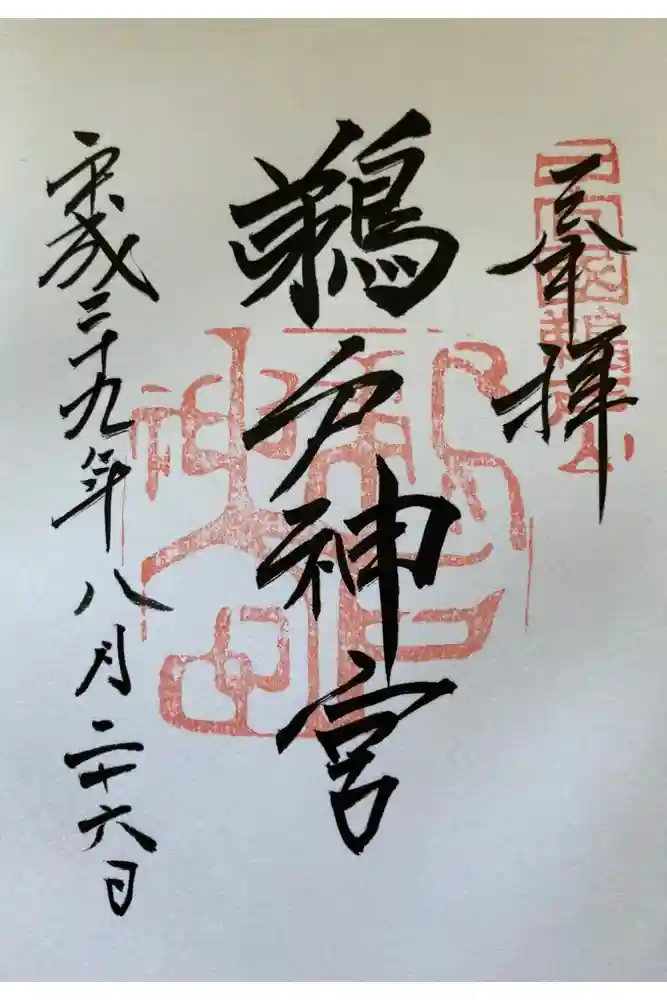 奉拝
鵜戸神宮
平成二十九年八月二十六日